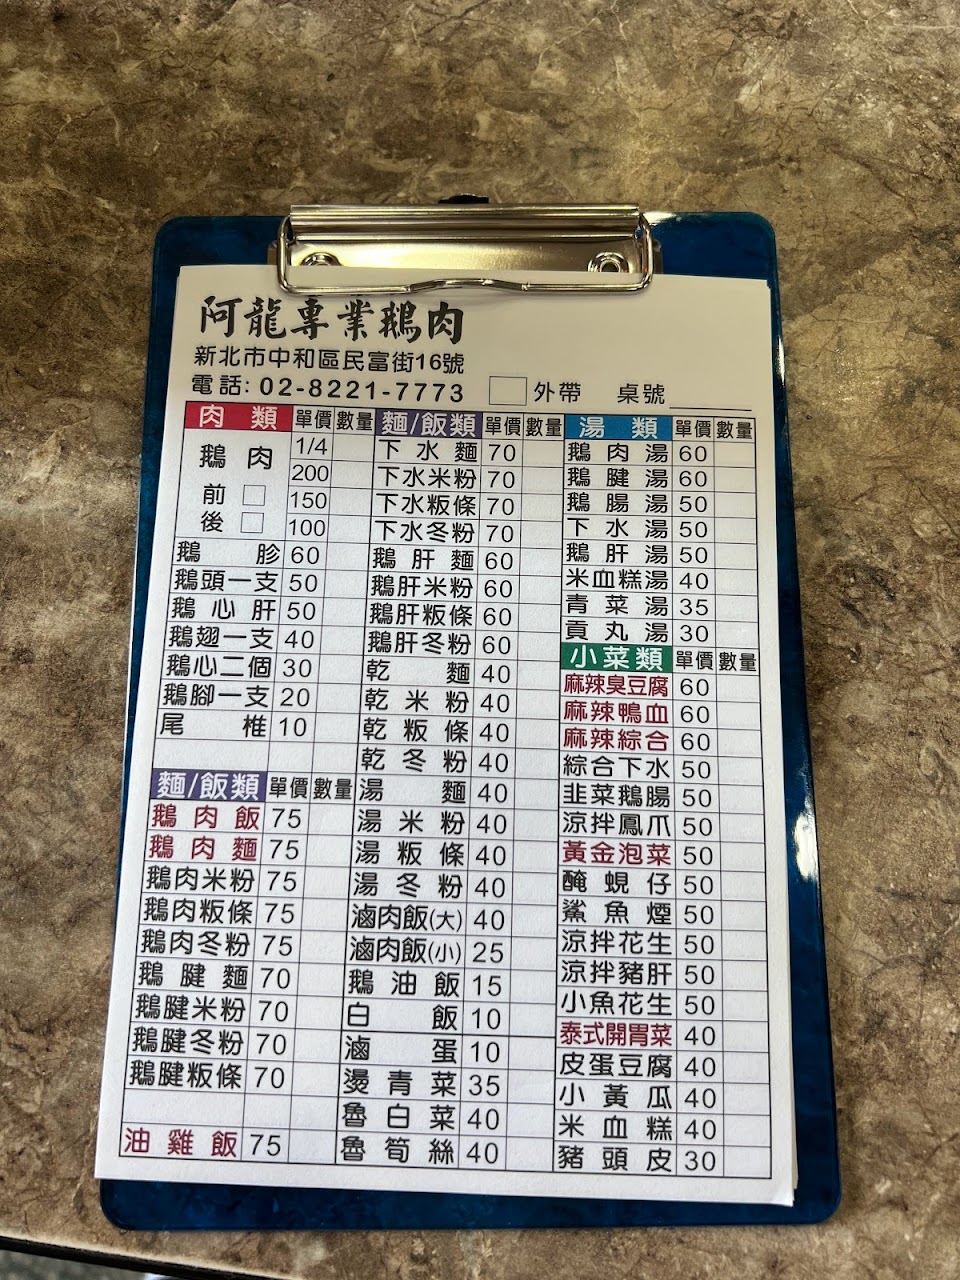 阿龍專業鵝肉
新北市中和區民富街16號
電話: 02-8221-7773 外帶 桌號
肉類 單價 數量
鵝肉 1/4
200
前 150
後 100
鵝胗 60
鵝頭一支 50
鵝心肝 50
鵝翅一支 40
鵝心二個 30
鵝腳一支 20
尾椎 10
麵/飯類 單價 數量
鵝肉飯 75
鵝肉麵 75
鵝肉米粉 75
鵝肉粄條 75
鵝肉冬粉 75
鵝腱麵 70
鵝腱米粉 70
鵝腱冬粉 70
鵝腱粄條 70
油雞飯 75
麵/飯類 單價 數量
下水麵 70
下水米粉 70
下水粄條 70
下水冬粉 70
鵝肝麵 60
鵝肝米粉 60
鵝肝粄條 60
鵝肝冬粉 60
乾麵 40
乾米粉 40
乾粄條 40
乾冬粉 40
湯麵 40
湯米粉 40
湯粄條 40
湯冬粉 40
滷肉飯(大) 40
滷肉飯(小) 25
鵝油飯 15
白飯 10
滷蛋 10
燙青菜 35
魯白菜 40
魯筍絲 40
湯類 單價 數量
鵝肉湯 60
鵝腱湯 60
鵝腸湯 50
下水湯 50
鵝肝湯 50
米血糕湯 40
青菜湯 35
貢丸湯 30
小菜類 單價 數量
麻辣臭豆腐 60
麻辣鴨血 60
麻辣綜合 60
綜合下水 50
韭菜鵝腸 50
涼拌鳳爪 50
黃金泡菜 50
醃蜆仔 50
鯊魚煙 50
涼拌花生 50
涼拌豬肝 50
小魚花生 50
泰式開胃菜 40
皮蛋豆腐 40
小黃瓜 40
米血糕 40
豬頭皮 30